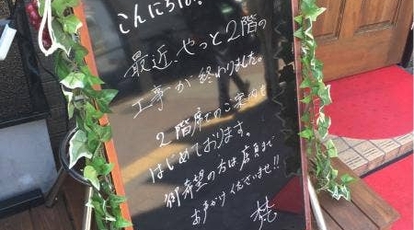 こんにちは!
最近、やっと2階の
工事が終わりました。
2階席のご案内も
はじめております。
御希望の方は店員まで
お声かけくださいませ!!
梵